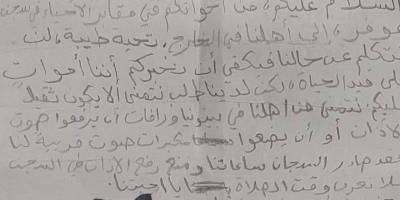 السلام عليكم، من أخوانكم في مقابر الأحياء في سجن
غويران إلى أهلنا في الخارج، تحية طيبة، لن
نتكلم عن حالنا فيكفي أن نخبركم أننا أموات
على قيد الحياة، لكن لدينا طلب نتمنى ألا يكون ثقيل
عليكم، نتمنى من أهلنا في سوريا و أن يرفعوا صوت
الأذان أو أن يضعوا مكبرات صوت قريبة لنا
فقد صادر السجان ساعاتنا ومنع رفع الأذان في السجن
فلا نعرف وقت الصلاة يا أحبتنا.